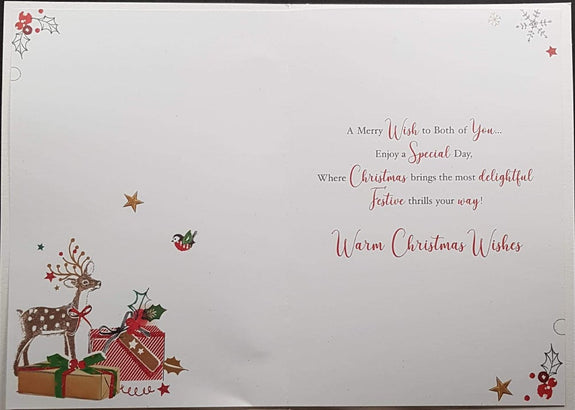 A Merry Wish to Both of You...
Enjoy a Special Day,
Where Christmas brings the most delightful
Festive thrills your way!
Warm Christmas Wishes